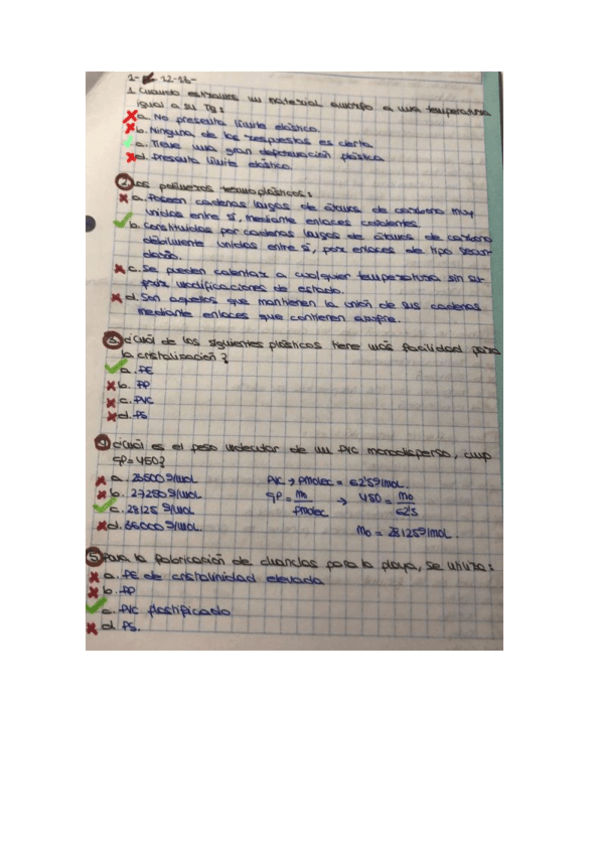 1- 12-18-
1. Cuando estiramos un material amorfo a una temperatura
igual a su Tg:
a. No presenta límite elástico.
b. Ninguna de las respuestas es cierta
c. Tiene una gran deformación plástica
d. Presenta límite elástico.
2. Los polímeros termoplásticos:
a. Poseen cadenas largas de átomos de carbono muy
unidos entre sí, mediante enlaces covalentes.
b. Constituidas por cadenas largas de átomos de carbono
débilmente unidos entre sí, por enlaces de tipo secun-
dario.
c. Se pueden calentar a cualquier temperatura sin su-
frir modificaciones de estado.
d. Son aquellos que mantienen la unión de sus cadenas
mediante enlaces que contienen azufre.
3 ¿Cuál de los siguientes plásticos tiene más facilidad para
la cristalización?
a. PE
b. PP
c. PVC
d. PS
4 ¿Cuál es el peso molecular de un PVC monodisperso, cuyo
GP=450?
a. 26500 g/mol
b. 27250 g/mol
c. 28125 g/mol
d. 36000 g/mol.
PVC → Pmolec = 62'5 g/mol.
GP = Mo/Pmolec → 450 = Mo/62'5
Mo = 28125 g/mol.
5 Para la fabricación de chanclas para la playa, se utiliza:
a. PE de cristalinidad elevada
b. PP
c. PVC plastificado
d. PS.